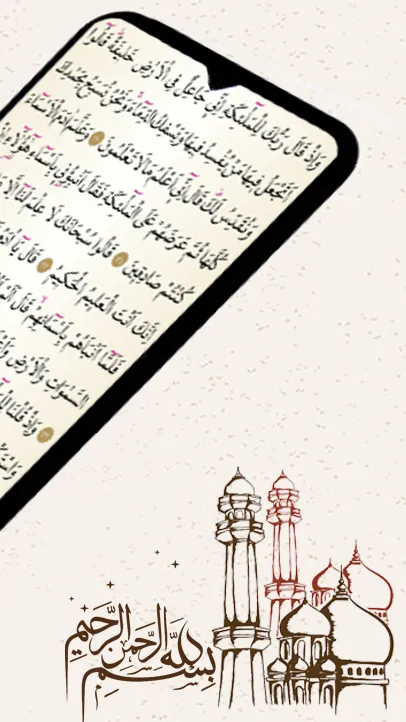 وَإِذْ قَالَ رَبُّكَ لِلْمَلٰٓئِكَةِ إِنِّي جَاعِلٌ فِي الْأَرْضِ خَلِيفَةً قَالُوا
أَتَجْعَلُ فِيهَا مَنْ يُفْسِدُ فِيهَا وَيَسْفِكُ الدِّمَاءَ وَنَحْنُ نُسَبِّحُ بِحَمْدِكَ
وَنُقَدِّسُ لَكَ قَالَ إِنِّي أَعْلَمُ مَا لَا تَعْلَمُونَ ٣٠ وَعَلَّمَ آدَمَ الْأَسْمَاءَ
كُلَّهَا ثُمَّ عَرَضَهُمْ عَلَى الْمَلٰٓئِكَةِ فَقَالَ أَنْبِئُونِي بِأَسْمَاءِ هٰٓؤُلَاءِ
كُنْتُمْ صَادِقِينَ ٣١ قَالُوا سُبْحَانَكَ لَا عِلْمَ لَنَا إِلَّا
إِنَّكَ أَنْتَ الْعَلِيمُ الْحَكِيمُ ٣٢ قَالَ يَا آدَمُ
فَلَمَّا أَنْبَأَهُمْ بِأَسْمَائِهِمْ قَالَ
السَّمٰوَاتِ وَالْأَرْضِ
٣٣ وَإِذْ قُلْنَا
بِسْمِ اللّٰهِ الرَّحْمٰنِ الرَّحِيمِ